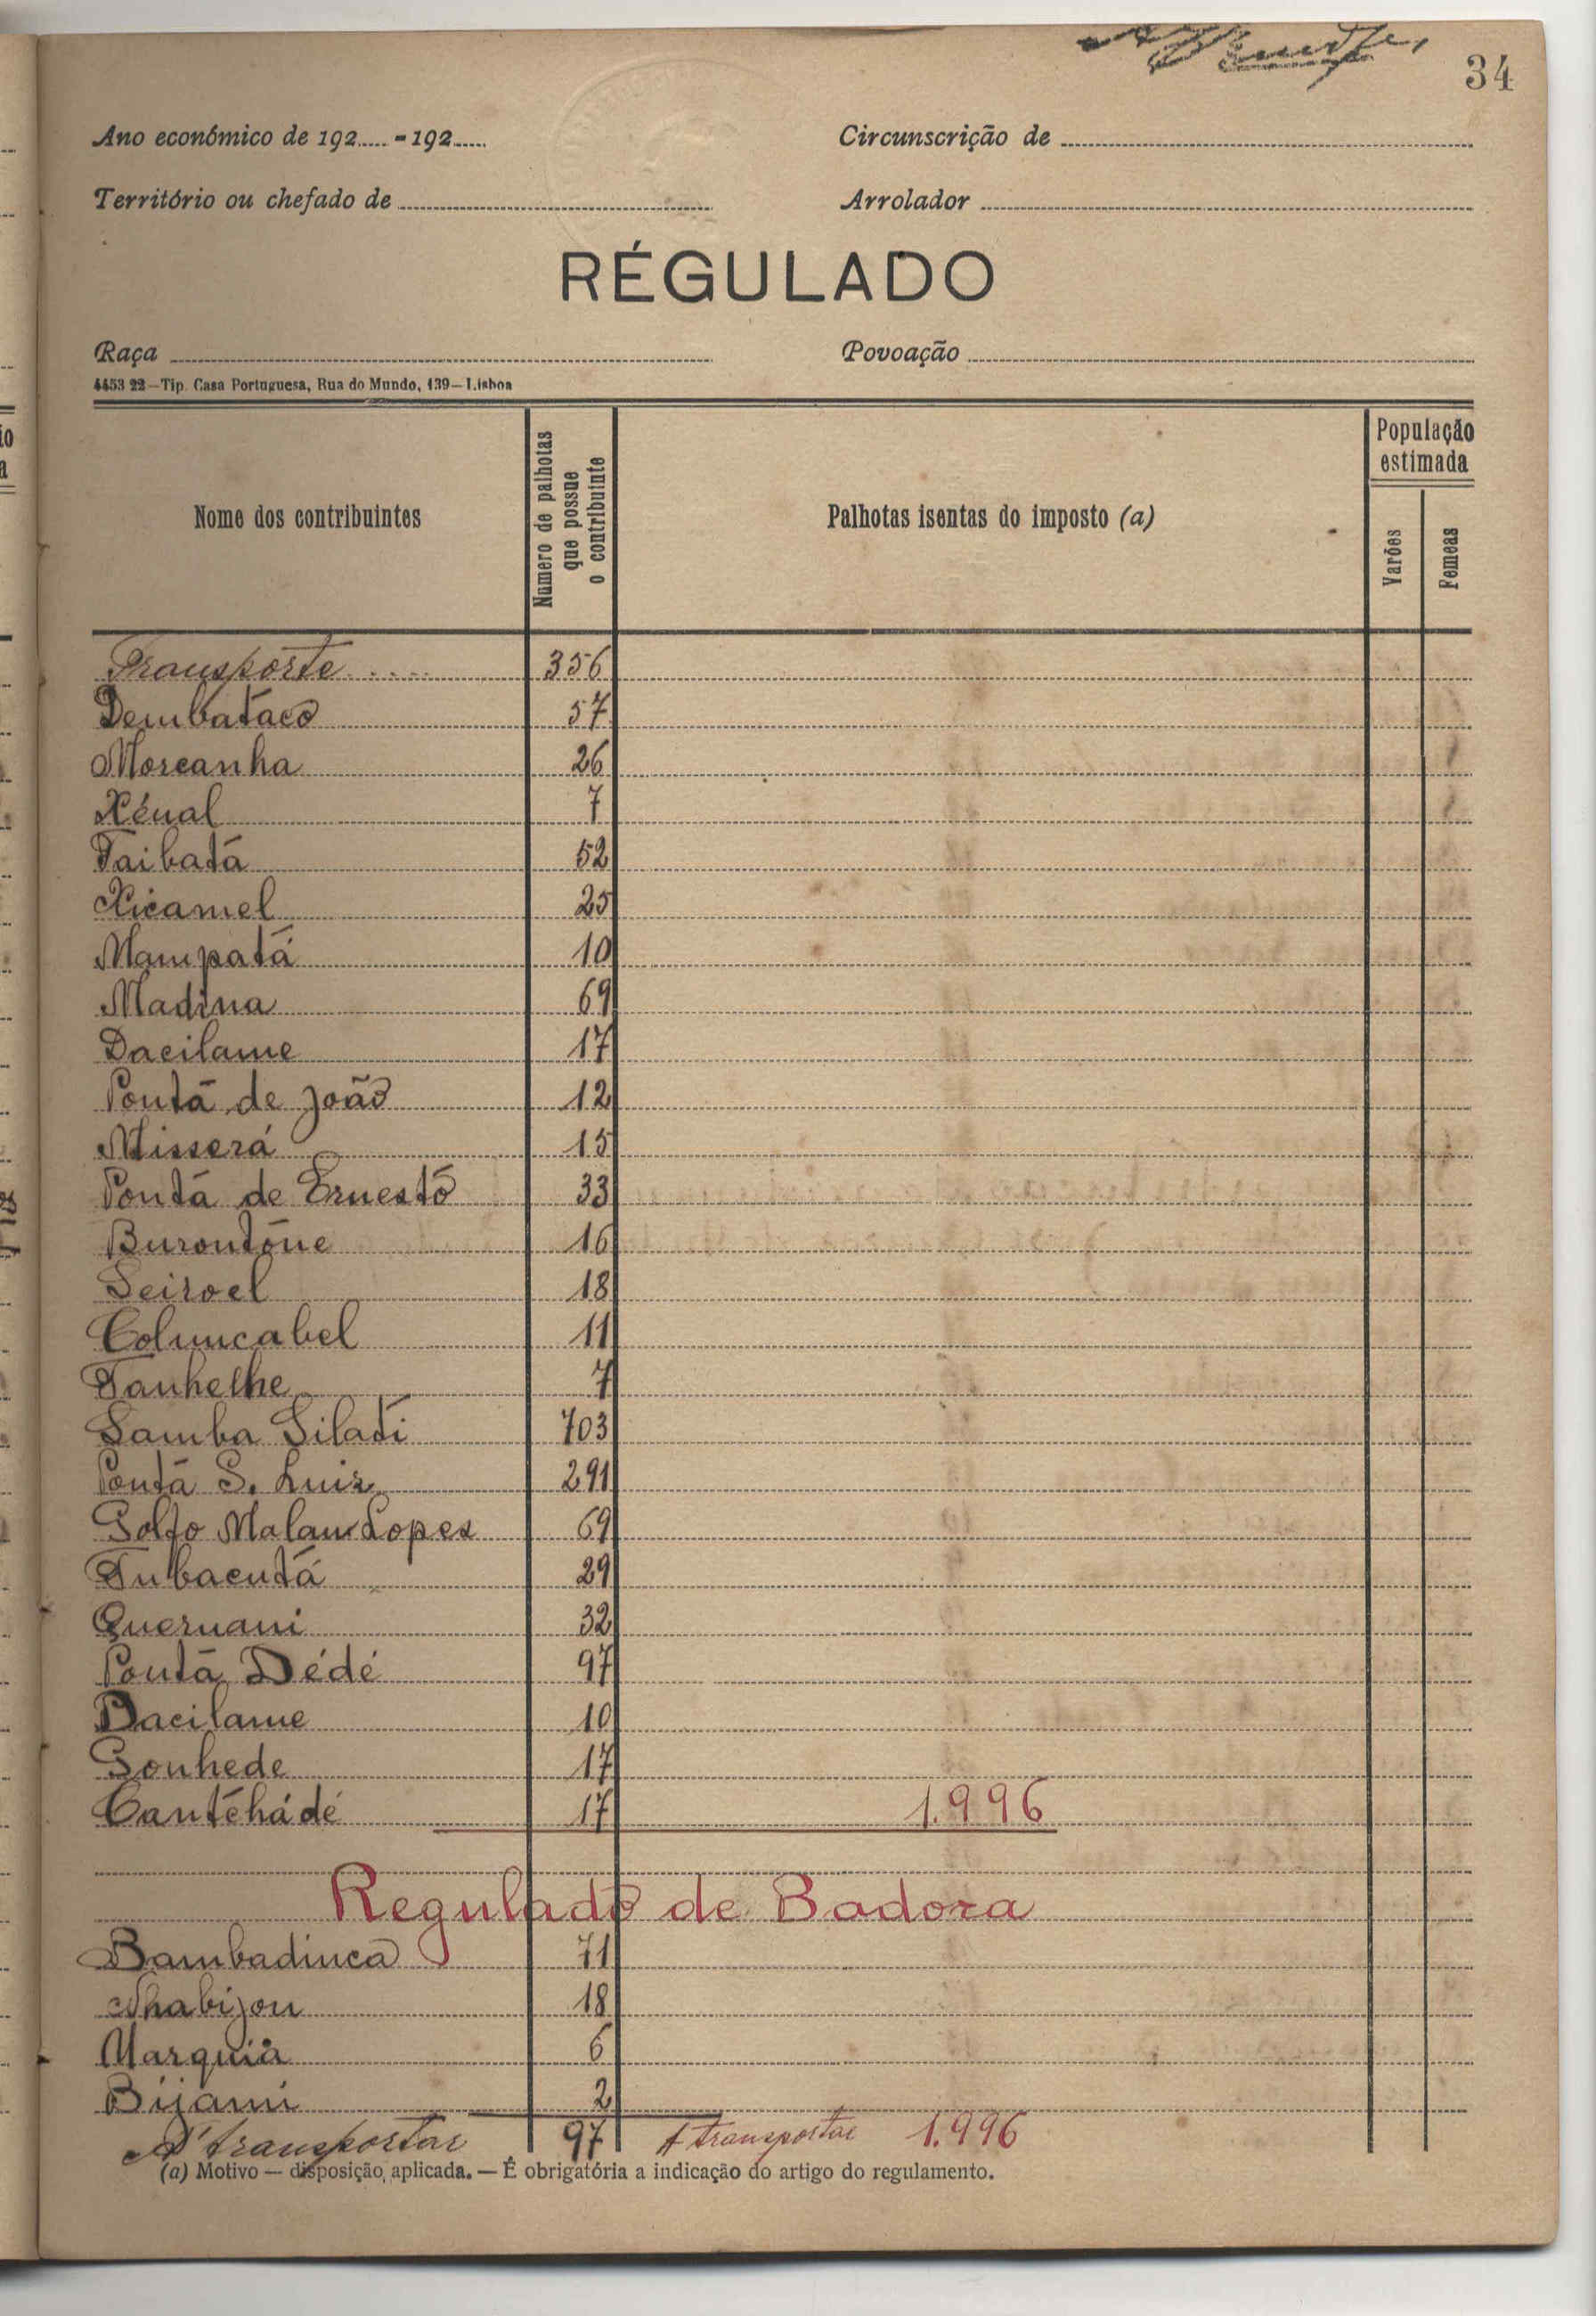 34
Ano económico de 192..... - 192.....
Circunscrição de
Território ou chefado de
Arrolador
RÉGULADO
Raça
Povoação
4453 22—Tip. Casa Portuguesa, Rua do Mundo, 139—Lisboa
Nome dos contribuintes
Numero de palhotas que possue o contribuinte
Palhotas isentas do imposto (a)
População estimada
Varões
Femeas
Transporte ..... 356
Dembataco 57
Moreanha 26
Xénal 7
Taibatá 52
Xicamel 25
Mampatá 10
Madina 69
Dacilame 17
Pontá de João 12
Misserá 15
Pontá de Ernestó 33
Burontóne 16
Seiroel 18
Columcabel 11
Tanhelhe 7
Samba Silati 703
Pontá S. Luiz 291
Golfo Malam Lopes 69
Tubacutá 29
Queruani 32
Pontá Dédé 97
Dacilame 10
Gonhede 17
Cantéhádé 17 1.996
Regulado de Badora
Bambadinca 71
Nhabijou 18
Marquiá 6
Bijami 2
A transportar 97 A transportar 1.996
(a) Motivo — disposição aplicada. — É obrigatória a indicação do artigo do regulamento.